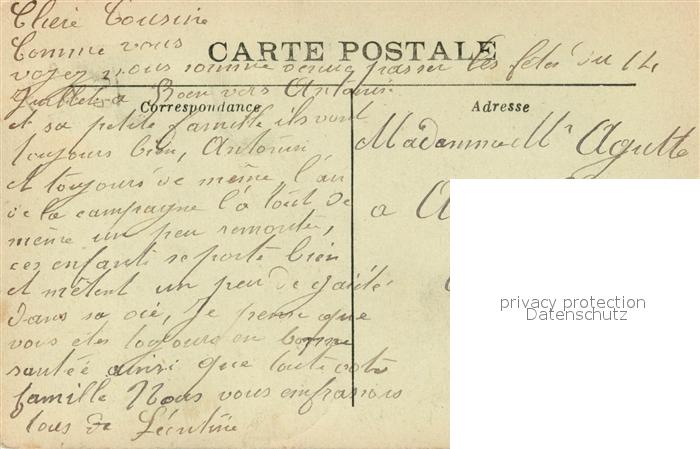 Chere Cousine
Comme vous
CARTE POSTALE
voyez nous somme venus passer les fetes du 14
Juillet a vers Antonin
Correspondance
et sa petite famille ils vont
toujours bien, Antonin
et toujours de meme, l'air
de la campagne l'a tout de
même un peu remonter,
ces enfants se porte bien
et mêtent un peu de gaiété
dans sa vie, Je pense que
vous etes toujours en bonne
santée ainsi que toute votre
famille Nous vous enfrassons
tous de Léontine
Adresse
Madamme Mr Agutte
a A
privacy protection
Datenschutz